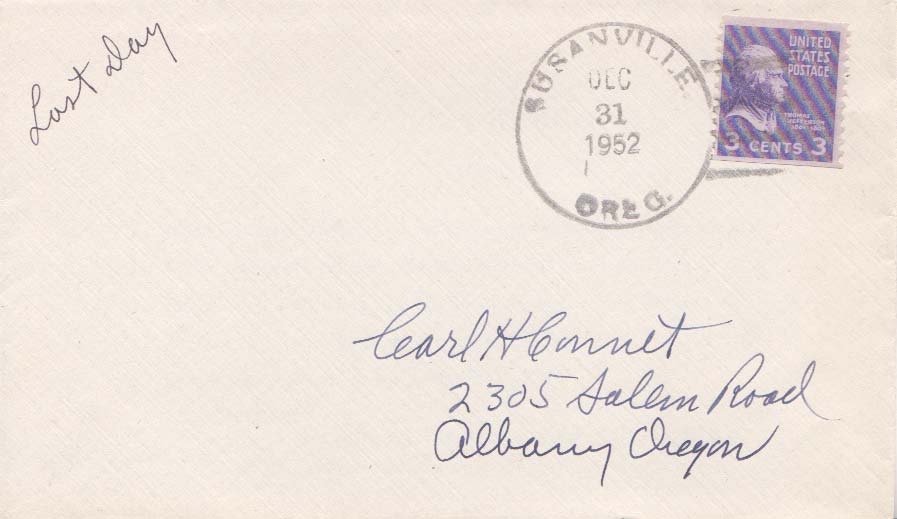 Last Day
SUSANVILLE
DEC
31
1952
OREG.
UNITED
STATES
POSTAGE
THOMAS
JEFFERSON
1801-1809
3 CENTS 3
Carl H Connet
2305 Salem Road
Albany Oregon